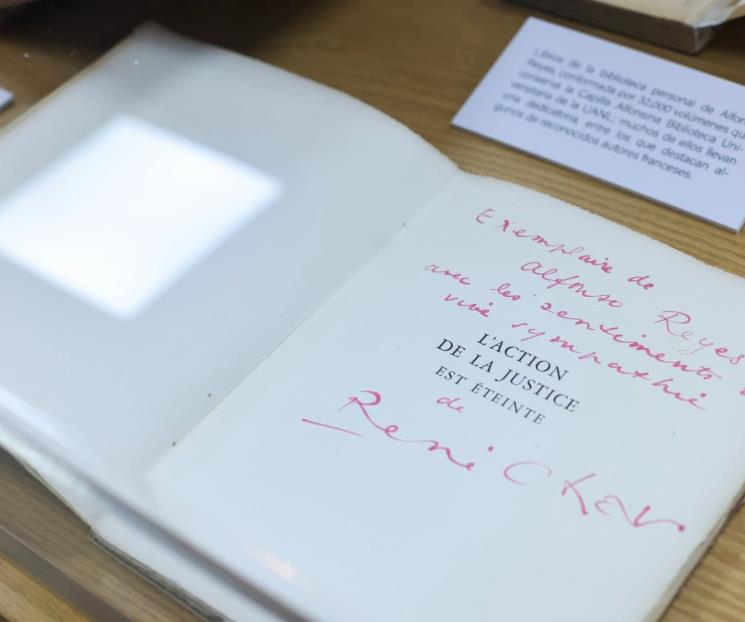 Libros de la biblioteca personal de Alfon
Reyes, conformada por 32,000 volúmenes qu
conserva la Capilla Alfonsina Biblioteca Uni-
versitaria de la UANL; muchos de ellos llevan
una dedicatoria, entre los que destacan al-
gunos de reconocidos autores franceses.
Exemplaire de
Alfonso Reyes
avec les sentiments
vive sympathie
L'ACTION
DE LA JUSTICE
EST ÉTEINTE
de
René Char